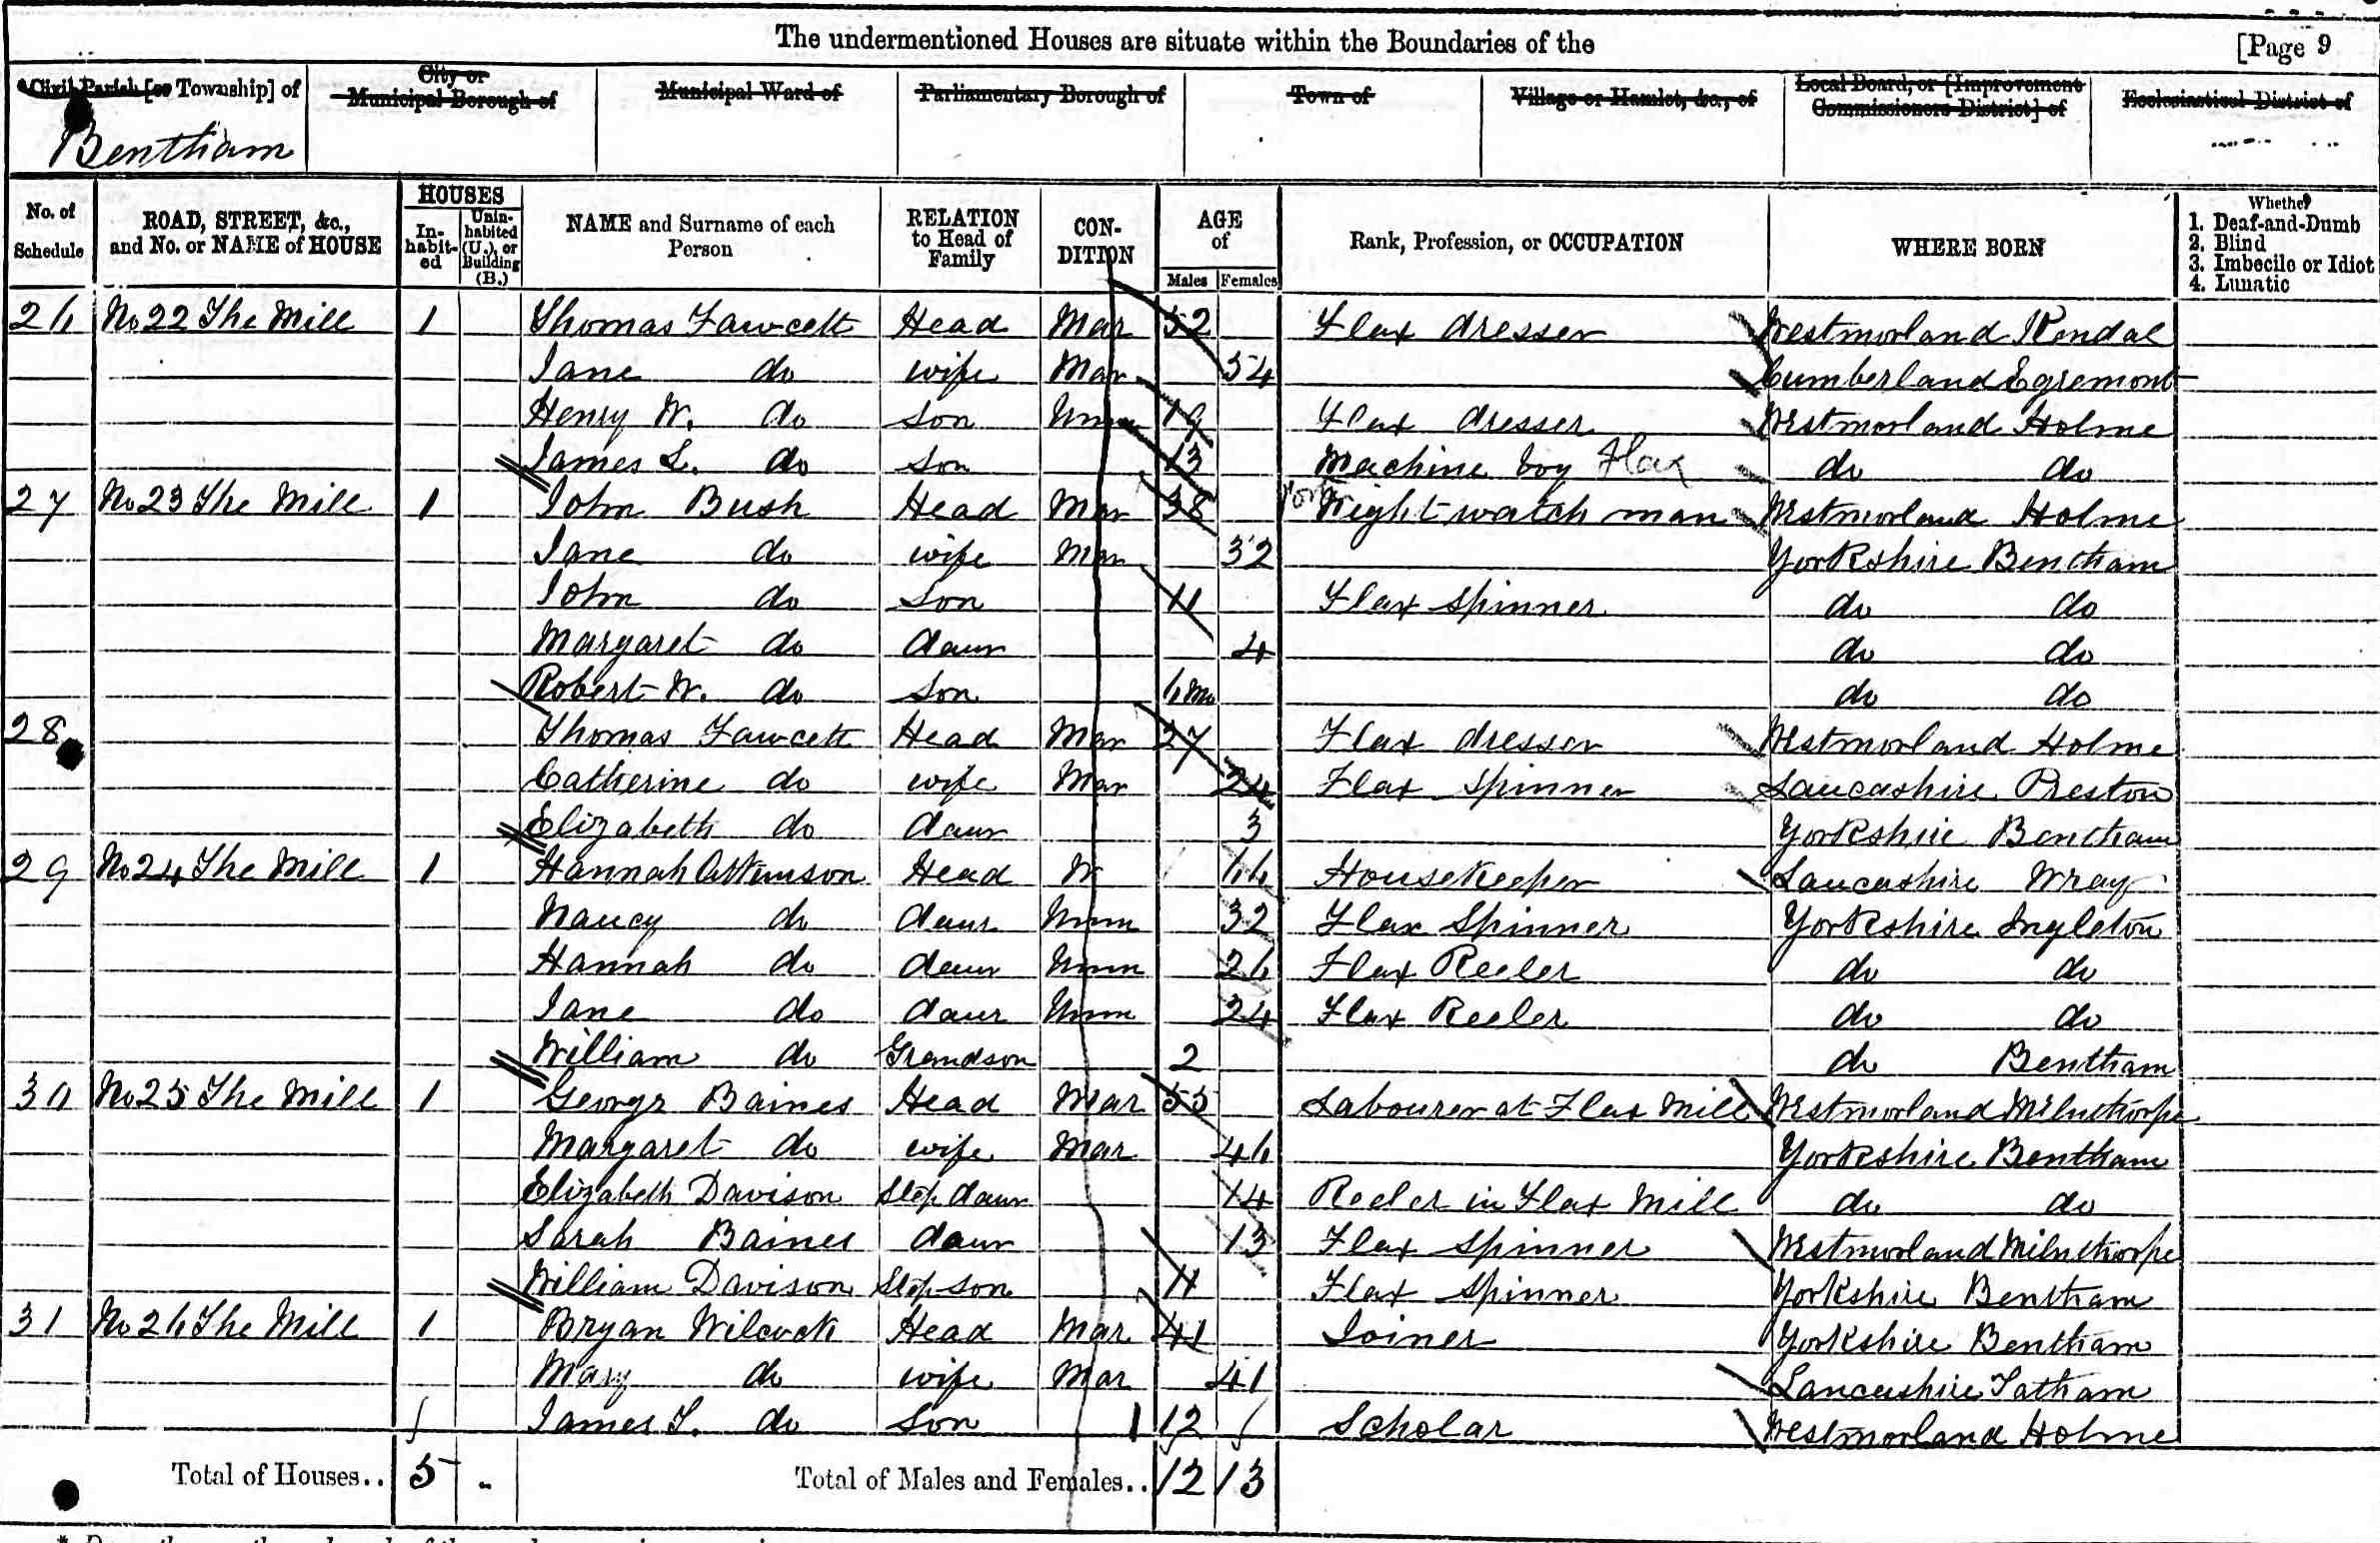 The undermentioned Houses are situate within the Boundaries of the [Page 9
Civil Parish [or Township] of City or Municipal Borough of Municipal Ward of Parliamentary Borough of Town of Village or Hamlet, &c., of Local Board, or [Improvement Commissioners District] of Ecclesiastical District of
Bentham
No. of Schedule ROAD, STREET, &c., and No. or NAME of HOUSE HOUSES In-habit-ed Unin-habited (U.), or Building (B.) NAME and Surname of each Person RELATION to Head of Family CON-DITION AGE of Males Females Rank, Profession, or OCCUPATION WHERE BORN Whether 1. Deaf-and-Dumb 2. Blind 3. Imbecile or Idiot 4. Lunatic
26 No 22 The Mill 1 Thomas Fawcett Head Mar 52 Flax dresser Westmorland Kendal
Jane do wife Mar 54 Cumberland Egremont
Henry W. do Son Unm 19 Flax dresser Westmorland Holme
James L. do Son 13 Machine boy Flax do do
27 No 23 The Mill 1 John Bush Head Mar 38 Night watch man Westmorland Holme
Jane do wife Mar 32 Yorkshire Bentham
John do Son 11 Flax spinner do do
Margaret do daur 4 do do
Robert W. do Son 6 Mo do do
28 Thomas Fawcett Head Mar 27 Flax dresser Westmorland Holme
Catherine do wife Mar 24 Flax spinner Lancashire Preston
Elizabeth do daur 3 Yorkshire Bentham
29 No 24 The Mill 1 Hannah Atkinson Head W 66 Housekeeper Lancashire Wray
Nancy do daur Unm 32 Flax Spinner Yorkshire Ingleton
Hannah do daur Unm 26 Flax Reeler do do
Jane do daur Unm 24 Flax Reeler do do
William do Grandson 2 do Bentham
30 No 25 The Mill 1 George Baines Head Mar 55 Labourer at Flax Mill Westmorland Milnthorpe
Margaret do wife Mar 46 Yorkshire Bentham
Elizabeth Davison Step daur 14 Reeler in Flax Mill do do
Sarah Baines daur 13 Flax spinner Westmorland Milnthorpe
William Davison Step-son 11 Flax spinner Yorkshire Bentham
31 No 26 The Mill 1 Bryan Wilcock Head Mar 41 Joiner Yorkshire Bentham
Mary do wife Mar 41 Lancashire Tatham
James T. do Son 12 Scholar Westmorland Holme
Total of Houses.. 5 - Total of Males and Females.. 12 13